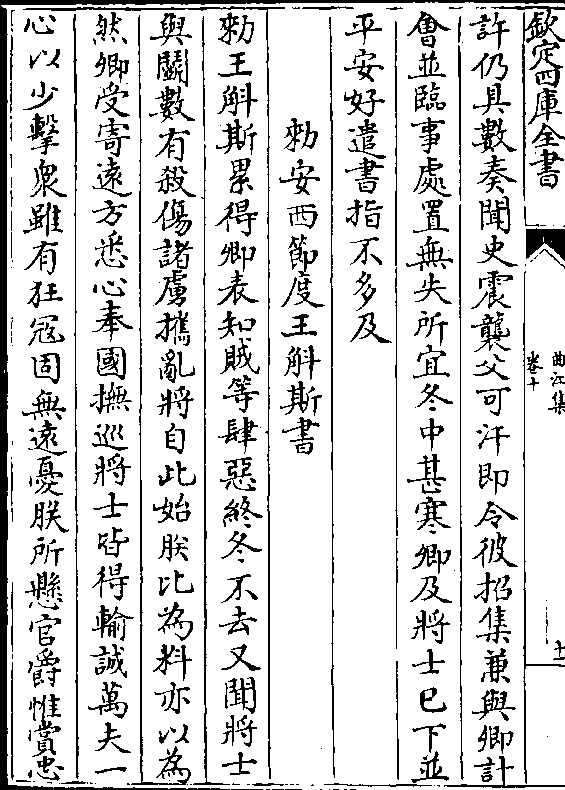 欽定四庫全書
曲江集
卷十
十一
許仍具數奏聞史震襲父可汗即令彼招集兼與卿計
會並臨事處置無失所宜冬中甚寒卿及將士已下並
平安好遣書指不多及
勅安西節度王斛斯書
勅王斛斯累得卿表知賊等肆惡終冬不去又聞將士
與鬬數有殺傷諸虜攜亂將自此始朕比為料亦以為
然卿受寄遠方悉心奉國撫巡將士皆得輸誠萬夫一
心以少擊衆雖有狂冦固無遠憂朕所懸官爵惟賞忠